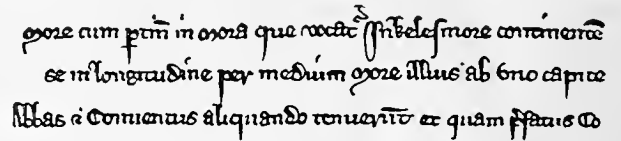 more cum ptin̄ in mora que vocat᷑ Inkelesmore continentē
se in longitudine per medium more illius ab uno capite
Abbas ⁊ Conventus aliquando tenuerūt et quam p̄fatus Co